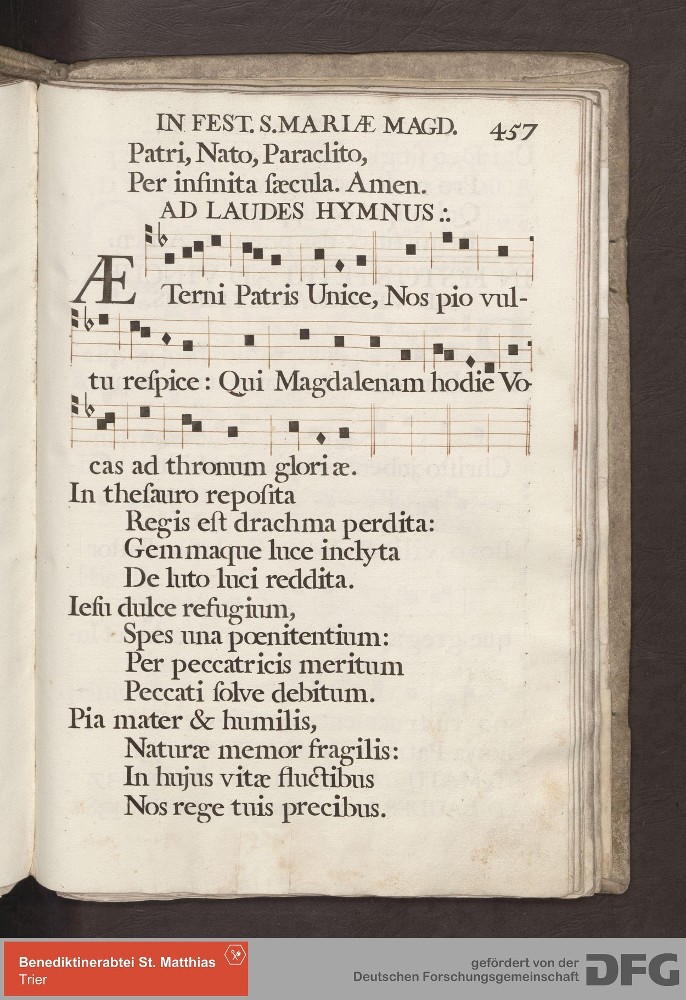 IN FEST. S. MARIÆ MAGD. 457
Patri, Nato, Paraclito,
Per infinita ſæcula. Amen.
AD LAUDES HYMNUS :.
ÆTerni Patris Unice, Nos pio vul-
tu reſpice : Qui Magdalenam hodie Vo-
cas ad thronum gloriæ.
In theſauro repoſita
Regis eſt drachma perdita:
Gemmaque luce inclyta
De luto luci reddita.
Ieſu dulce refugium,
Spes una pœnitentium:
Per peccatricis meritum
Peccati ſolve debitum.
Pia mater & humilis,
Naturæ memor fragilis:
In hujus vitæ fluctibus
Nos rege tuis precibus.
Benediktinerabtei St. Matthias
Trier
gefördert von der
Deutschen Forschungsgemeinschaft
DFG